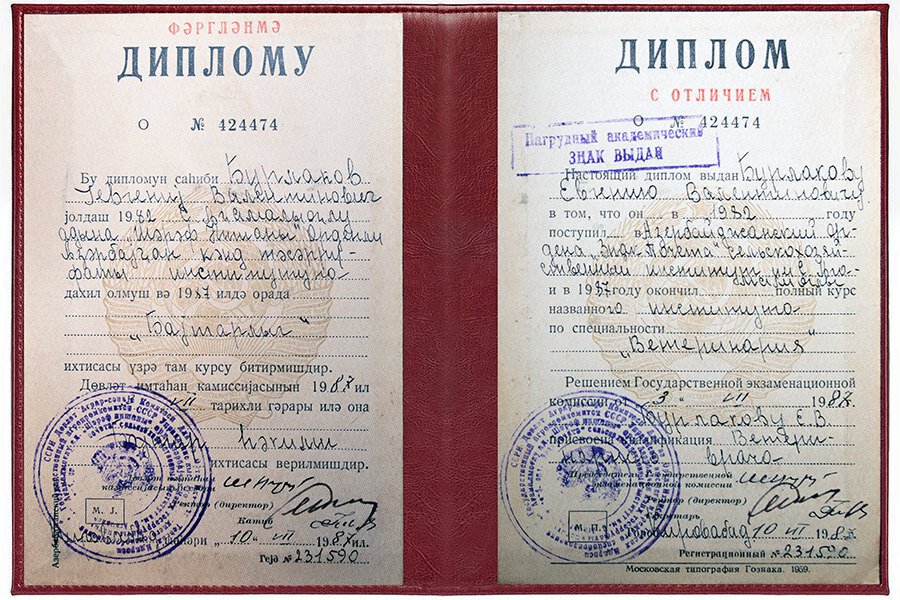 ФӘРГЛӘНМӘ
ДИПЛОМУ
О № 424474
Бу дипломун саһиби Бурлаков
Јевҝениј Валентинович
јолдаш 1982
адына „Шәрәф Нишаны" Орденли
Азәрбајҹан кәнд тәсәррү-
фаты институтуна
дахил олмуш вә 1987 илдә орада
„Бајтарлыг"
ихтисасы үзрә там курсу битирмишдир.
Дөвләт имтаһан камиссијасынын 1987 ил
VII тарихли гәрары илә она
һәкими
ихтисасы верилмишдир.
Ректор (директор)
Катиб
М. Ј.
„10" VII 1987 ил.
Гејд № 231590
ДИПЛОМ
С ОТЛИЧИЕМ
О № 424474
Нагрудный академический
ЗНАК ВЫДАН
Настоящий диплом выдан Бурлакову
Евгению Валентиновичу
в том, что он в 1982 году
поступил в Азербайджанский ор-
дена „Знак Почета" сельскохозяй-
ственный институт им. С. Ага-
малиоглы
и в 1987 году окончил полный курс
названного института
по специальности
„Ветеринария"
Решением Государственной экзаменационной
комиссии от 3 VII 1987
Бурлакову Е.В.
присвоена квалификация Ветери-
нарного врача
Председатель Государственной
экзаменационной комиссии
Ректор (директор)
Секретарь
М. П.
г. Кировабад 10 VII 1987
Регистрационный № 231590
Московская типография Гознака. 1959.